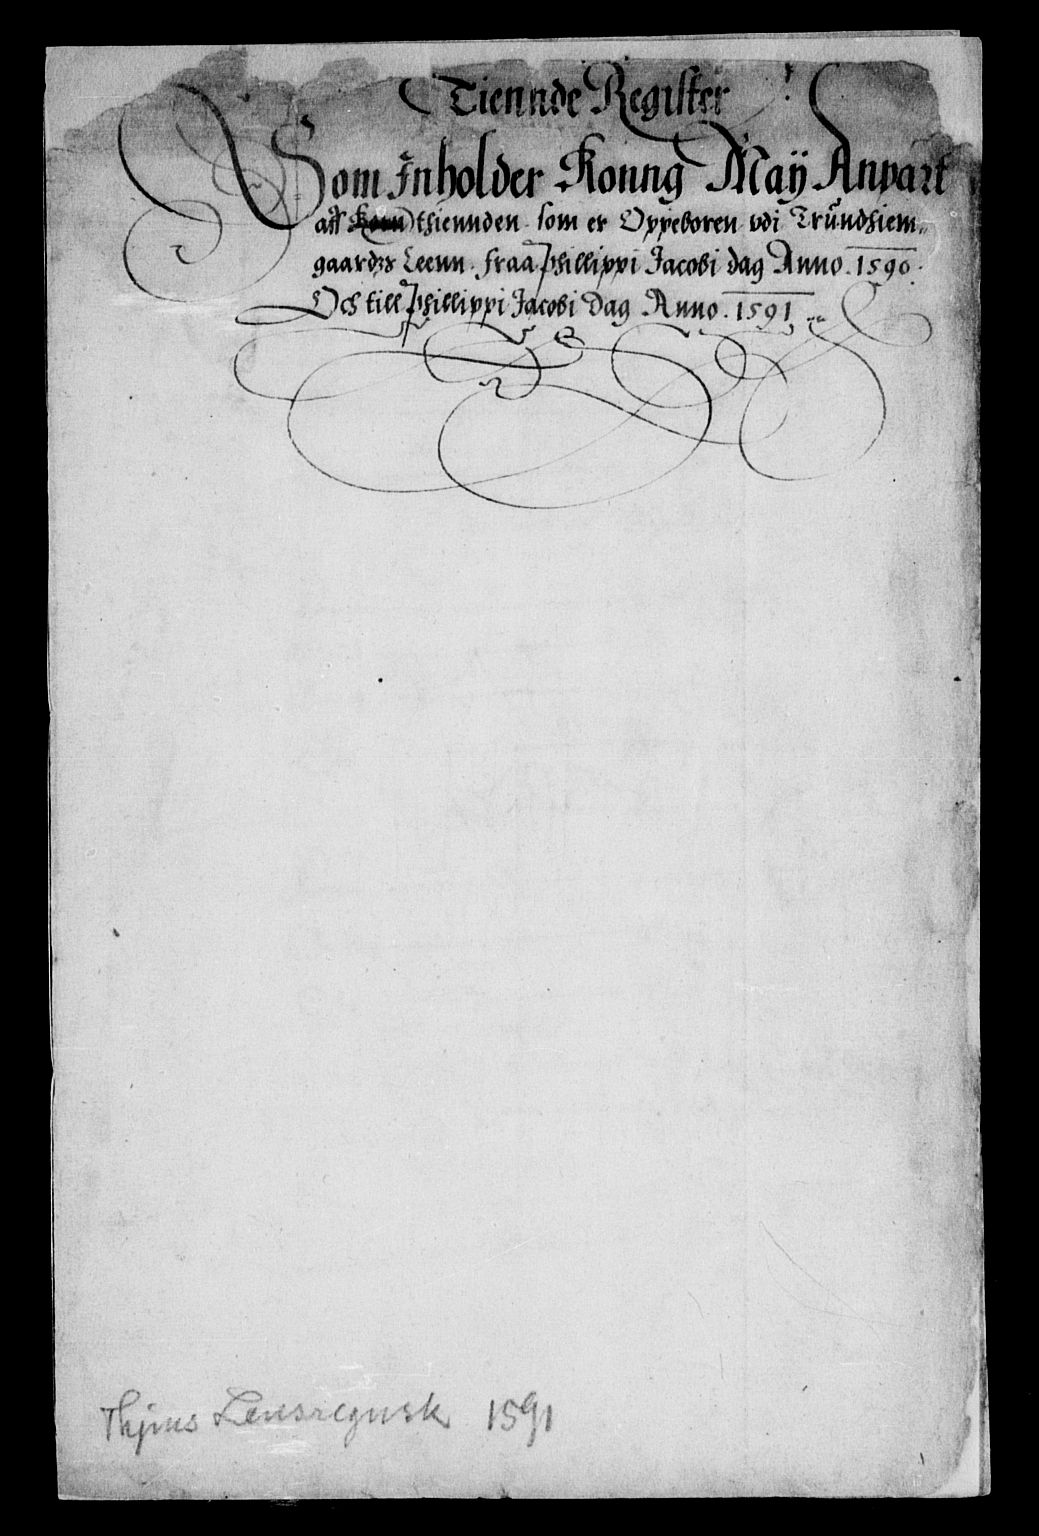 Tiennde Register
Som Inholder Konng May Anpart
aff Korn thiennden som er Oppeboren vdi Trundhiem„
gaardz Leenn. fraa Phillippi Jacobi dag Anno. 1590.
Och till Phillippi Jacobi Dag Anno. 1591 „„
Thjms Lensregnsk 1591